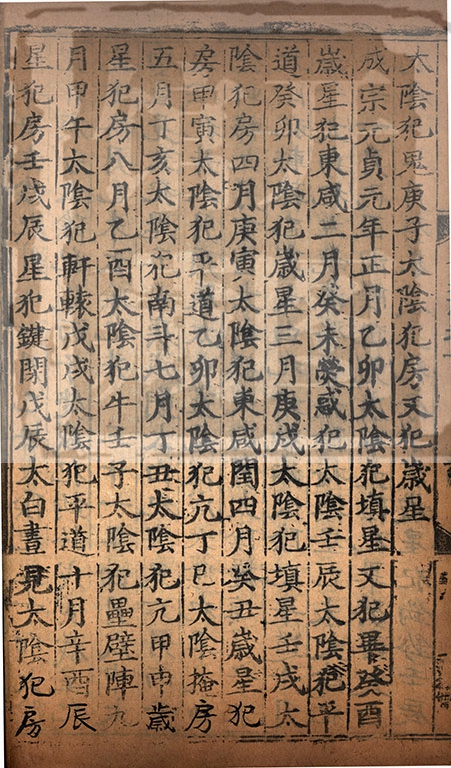 太陰犯鬼庚子太陰犯房又犯歲星
成宗元貞元年正月乙卯太陰犯填星又犯畢癸酉
歲星犯東咸二月癸未熒惑犯太陰壬辰太陰犯平
道癸卯太陰犯歲星三月庚戌太陰犯填星壬戌太
陰犯房四月庚寅太陰犯東咸閏四月癸丑歲星犯
房甲寅太陰犯平道乙卯太陰犯亢丁巳太陰掩房
五月丁亥太陰犯南斗七月丁丑太陰犯亢甲申歲
星犯房八月乙酉太陰犯牛壬子太陰犯壘壁陣九
月甲午太陰犯軒轅戊戌太陰犯平道十月辛酉辰
星犯房壬戌辰星犯鍵閉戊辰太白晝見太陰犯房